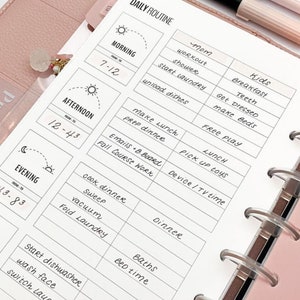 DAILY ROUTINE
MORNING
7-12
Mom
workout
shower
start laundry
unload dishes
Kids
Breakfast
Teeth
Get Dressed
Make Beds
AFTERNOON
12-4
make lunch
prep dinner
Emails + B
Fail Course Work
Free play
Lunch
Pick up toys
Device / TV time
EVENING
cook dinner
sweep
vacuum
Fold Laundry
Dinner
Start dishwasher
wash face
switch
Baths
Bed time